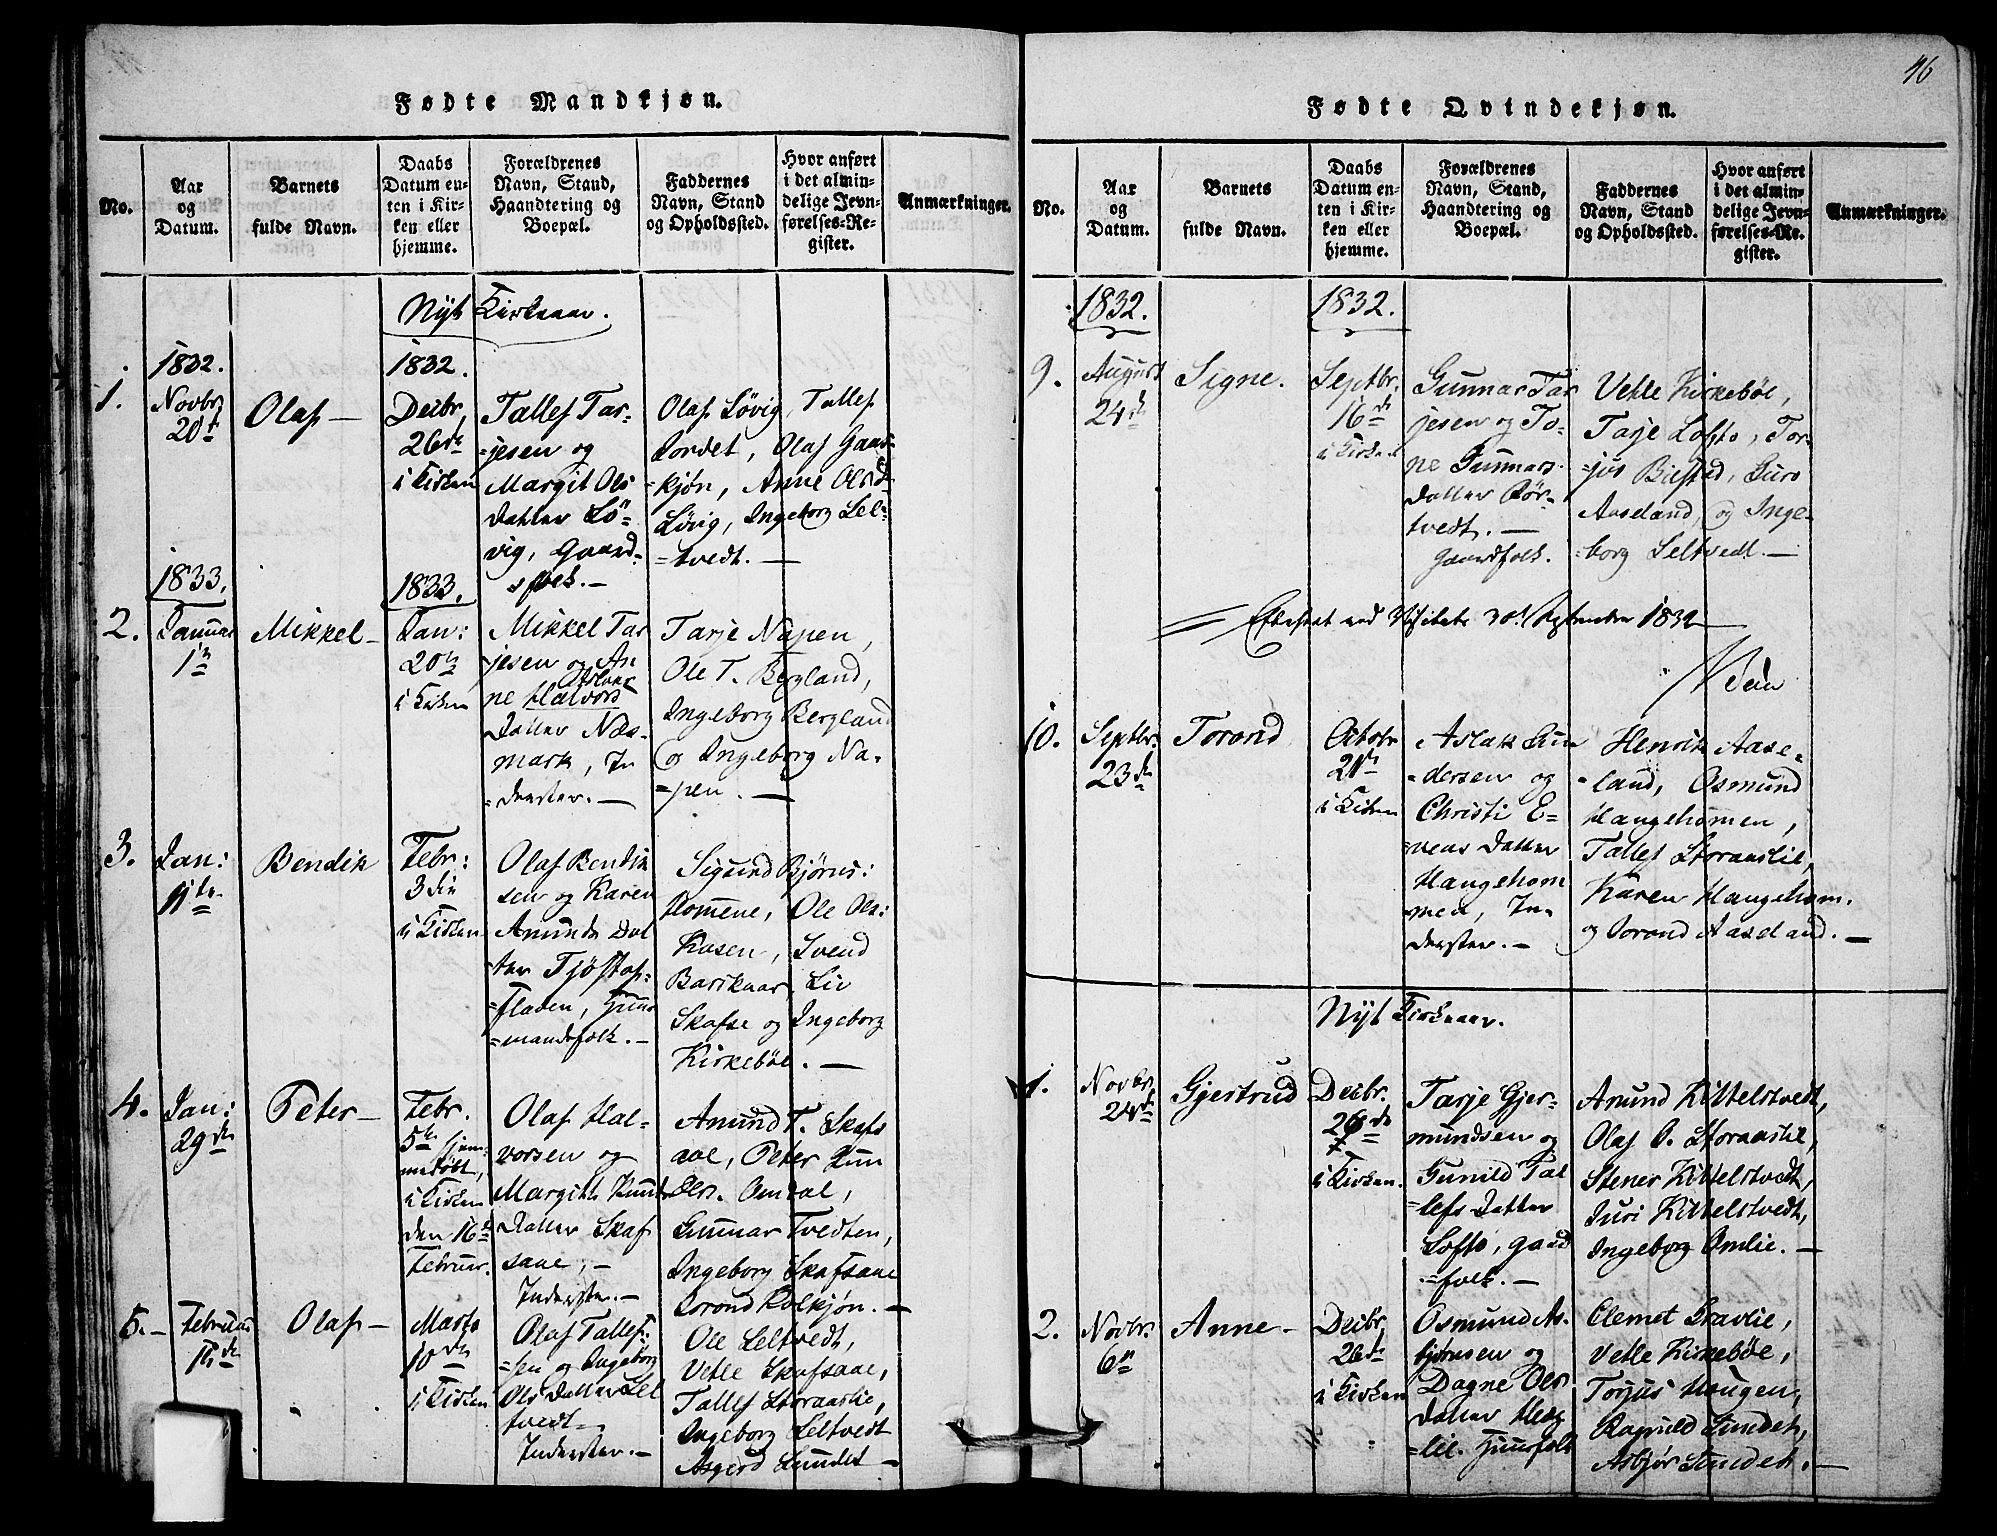 46
Fødte Mandkjøn.
No.
Aar
og
Datum.
Barnets
fulde Navn.
Daabs
Datum en-
ten i Kir-
ken eller
hjemme.
Forældrenes
Navn, Stand,
Haandtering og
Boepæl.
Faddernes
Navn, Stand
og Opholdssted.
Hvor anført
i det almin-
delige Jevn-
førelses-Re-
gister.
Anmærkninger.
Nyt Kirkeaar.
1.
1832.
Novbr
20de
Olaf —
1832.
Decbr.
26de
i Kirken
Tallef Tar-
=jesen og
Margit Ols
datter Lö-
vig, Gaard-
sfolk. —
Olaf Løvig, Tallef
Olaf Gaas-
=kjön, Anne Olsd.
Løvig, Ingeborg Sel-
=tvedt. —
2.
1833.
Januar
1te
Mikkel —
1833.
Jan:
20de
i Kirken
Mikkel Tar
jesen og An
ne Halvors
Datter Næs-
mark, In
=derster. —
Tarje Napen,
Ole T. Bergland,
Ingeborg Bergland
og Ingeborg Na-
=pen. —
3.
Jan:
11te
Bendik
Febr:
3die
i Kirken
Olaf Bendik
sen og Karen
Amunds Dat
ter Tjöstof-
=flaten, Huus
=mandsfolk. —
Sigurd Bjørns:
Homene, Ole Ols:
Kasen, Svend
Bariknar, Liv
Skafse og Ingeborg
Kirkebøe. —
4.
Jan:
29de
Peter —
Febr.
5te hjem-
medöbt,
i Kirken
den 16de
Februar.
Olaf Hal-
vorsen og
Margith Knuds
Datter Skaf
saae, —
Inderster. —
Amund T. Skafs
aae, Peter Gun
Ols. Omdal,
Gunnar Tvedten,
Ingeborg Skafsaae
Torond Kolkjøn. —
5. —
Februar
11de
Olaf —
Marts
10de
i Kirken
Olaf Tallef-
=sen og Ingeborg
Ols Datter Sel
tvedt —
Inderster. —
Ole Seltvedt,
Vetle Skafsaae,
Tallef Storaaslie,
Ingeborg Seltvedt
Asgerd Sundet —
Fødte Qvindekjøn.
No.
Aar
og
Datum.
Barnets
fulde Navn.
Daabs
Datum en-
ten i Kir-
ken eller
hjemme.
Forældrenes
Navn, Stand,
Haandtering og
Boepæl.
Faddernes
Navn, Stand
og Opholdssted.
Hvor anført
i det almin-
delige Jevn-
førelses-Re-
gister.
Anmærkninger.
9.
1832.
August
24de
Signe.
1832.
Septbr.
16de
i Kirken
Gunnar Tar
jesen og To-
ne Gunnars
datter Rör-
tvedt. —
Gaardfolk.
Vetle Kirkebøe,
Tarje Lofto, Tor-
=jus Biestad, Guro
Aaseland, og Inge-
=borg Seltvedt. —
Efterseet ved Visitats 30. September 1832
10.
Septbr.
23de
Torond
Octobr
21de
i Kirken
Aslak Gun
=dersen og
Christi E-
vens Datter
Haugehom
men, In-
derster. —
Henrik Aase-
=land, Osmund
Haugehomen,
Tallef Storaaslie,
Karen Haugehom.
og Torond Aaseland. —
Nyt Kirkeaar.
1.
Novbr.
24de
Gjertrud
Decbr.
26de
i Kirken.
Tarje Gjer-
mundsen og
Gunild Tal
lefs Datter
Lofto, gaard
=folk. —
Amund Kittelstvedt,
Olaf O. Storaaslie,
Stener Kittelstvedt,
Guri Kittelstvedt,
Ingeborg Omlie. —
2.
Novbr.
6te
Anne —
Decbr.
26de
i Kirken
Osmund As-
bjørnsen og
Dagne Ols
datter Heg
=lie. Huusfolk
Clemet Gravlie,
Vetle Kirkebøe,
Torjus Haugen,
Ragnild Sundet,
Asbjør Sundet. —